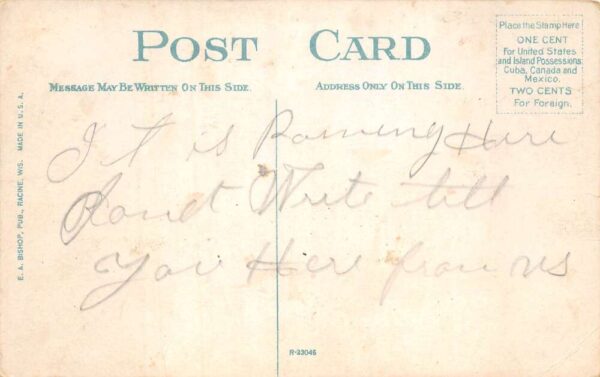 POST CARD
MESSAGE MAY BE WRITTEN ON THIS SIDE.
ADDRESS ONLY ON THIS SIDE.
Place the Stamp Here
ONE CENT
For United States
and Island Possessions
Cuba, Canada and
Mexico.
TWO CENTS
For Foreign.
E. A. BISHOP, PUB., RACINE, WIS. MADE IN U. S. A.
It is Raining Here
Donet Write till
You Here from us
R-33046